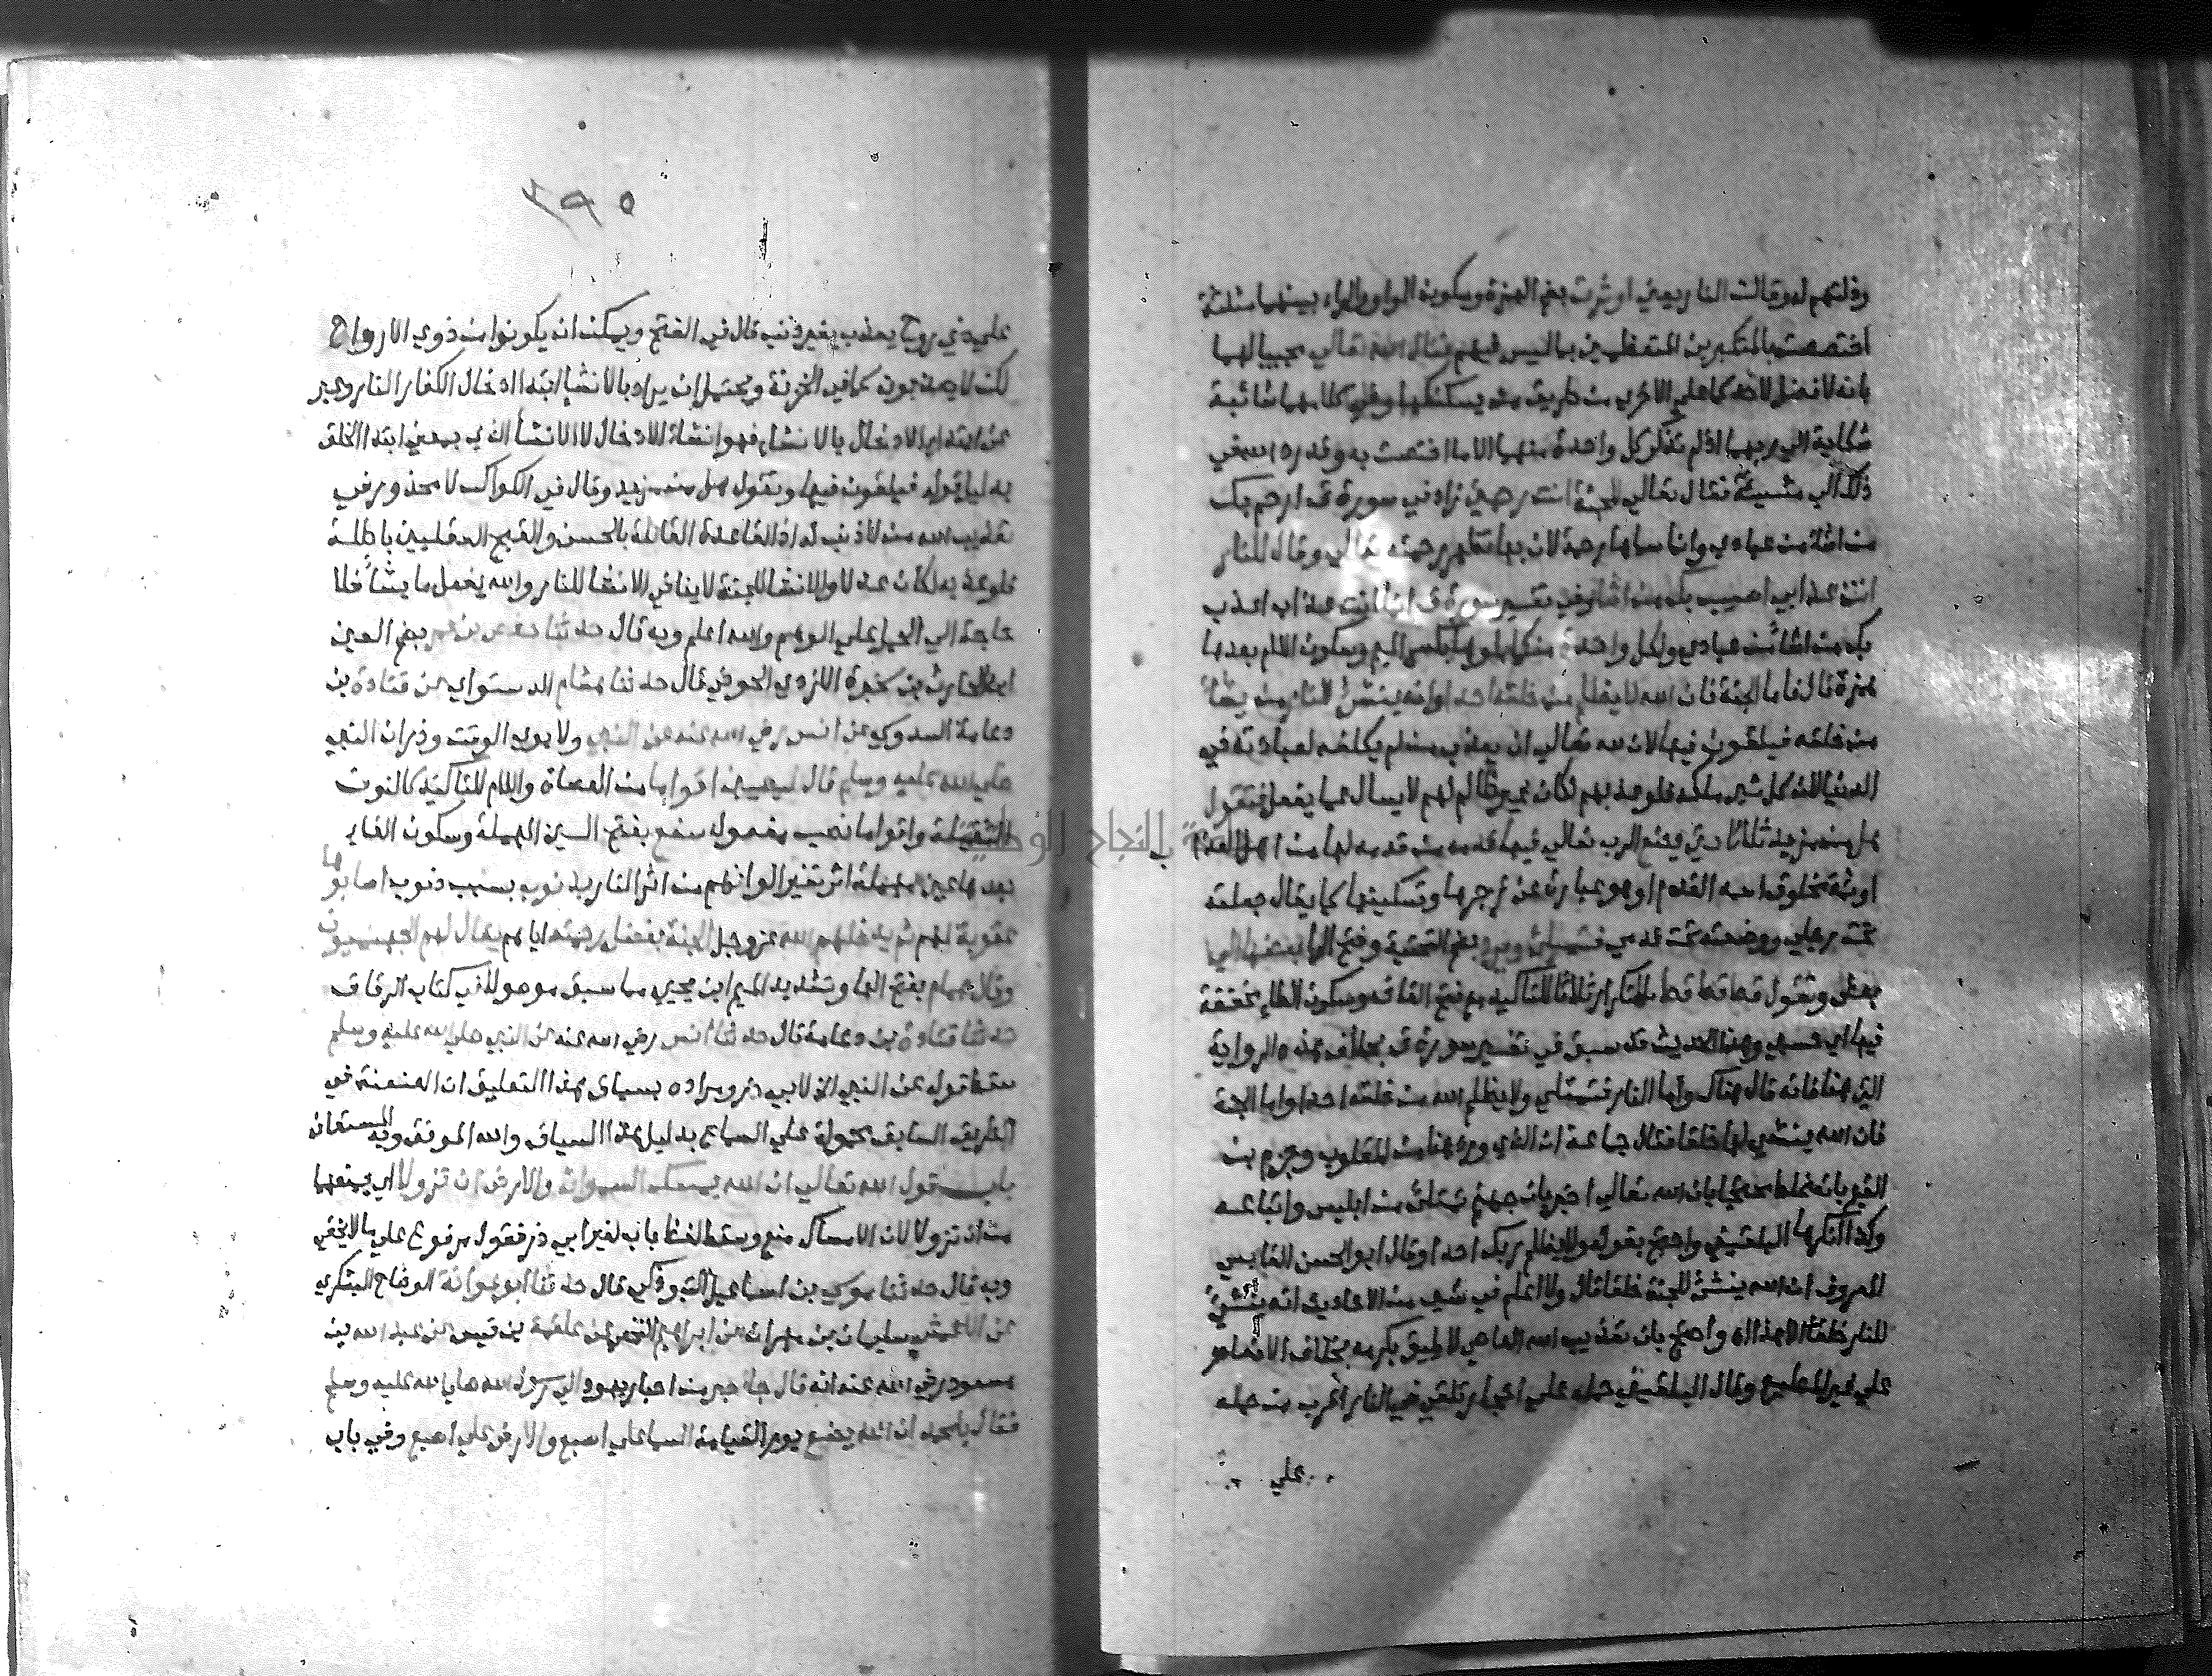 وذلتهم له وقالت النار يعني اوثرت بضم الهمزة وسكون الواو والراء بينهما مثلثة
اختصصت بالمتكبرين المتعظمين بما ليس فيهم فقال الله تعالي مجيبا لهما
بانه لا فضل لاحدكما علي الاخري من طريق من يسكنكما وفي كلامهما شائبة
شكاية الي ربهما اذ لم تذكر كل واحدة منهما الا ما اختصت به وقد رد الله في
ذلك الي مشيئته فقال تعالي للجنة انت رحمتي زاد في سورة ق ارحم بك
من اشا من عبادي وانما سماها رحمة لان بها تظهر رحمته تعالي وقال للنار
انت عذابي اصيب بك من اشا وفي تفسير سورة ق انما انت عذاب اعذب
بك من اشا من عبادي ولكل واحدة منكما ملوها بكسر الميم وسكون اللام بعدها
همزة قال فاما الجنة فان الله لا يظلم من خلقه احدا وانه ينشئ للنار من يشا
من خلقه فيلقون فيها لان لله تعالي ان يعذب من لم يكلفه لعبادته في
الدنيا لان كل شي ملكه فلو عذبهم لكان غير ظالم لهم لا يسال عما يفعل فتقول
هل من مزيد ثلاثا حتي يضع الرب تعالي فيها قدمه من قدمه لها من اهل العذاب
او ثمة مخلوق اسمه القدم او هو عبارة عن زجرها وتسكينها كما يقال جعلته
تحت رجلي ووضعته تحت قدمي فتمتلئ ويرد بضم التحتية وفتح الرا بعضها الي
بعض وتقول قط قط قط بالتكرار ثلاثا للتاكيد مع فتح القاف وسكون الطا مخففة
فيها اي حسبي وهذا الحديث قد سبق في تفسير سورة ق بخلاف هذه الرواية
التي هنا فانه قال هناك واما النار فتمتلي ولا يظلم الله من خلقه احدا واما الجنة
فان الله ينشي لها خلقا فقال جماعة ان الذي ورد هنا من المقلوب وجزم بن
القيم بانه غلط محتجا بان الله تعالي اخبر بان جهنم تمتلئ من ابليس واتباعه
وكذا انكرها البلقيني واحتج بقوله ولا يظلم ربك احدا وقال ابو الحسن القابسي
المعروف ان الله ينشئ للجنة خلقا قال ولا اعلم في شي من الاحاديث انه ينشئ
للنار خلقا الا هذا اه واجيب بان تعذيب الله العاصي لا يليق بكرمه بخلاف الانعام
علي غير المطيع وقال البلقيني حمله علي احجار تلقي في النار اقرب من حمله
علي
٣٩٥
علي ذي روح يعذب بغير ذنب قال في الفتح ويمكن ان يكونوا من ذوي الارواح
لكن لا يعذبون كما في الخزنة ويحتمل ان يراد بالانشا ابتدا ادخال الكفار النار وعبر
عن ابتدا الادخال بالانشا فهو انشاء الادخال لا الانشا الذي بمعني ابتدا الخلق
بدليل قوله فيلقون فيها وتقول هل من مزيد وقال في الكواكب لا محذور في
تعذيب الله من لا ذنب له اذ القاعدة القائلة بالحسن والقبح العقليين باطلة
فلو عذبه لكان عدلا والانشا للجنة لا ينافي الانشا للنار والله يفعل ما يشا فلا
حاجة الي الحمل علي الوهم والله اعلم وبه قال حدثنا حفص بن عمر بضم العين
ابن الحارث بن سخبرة الازدي الحوضي قال حدثنا هشام الدستواي عن قتادة بن
دعامة السدوسي عن انس رضي الله عنه عن النبي ولابوي الوقت وذر ان النبي
صلي الله عليه وسلم قال ليصيبن اقواما من العصاة واللام للتاكيد كالنون
الثقيلة واقواما نصب مفعول سفع بفتح السين المهملة وسكون الفا
بعدها عين مهملة اثر تغير الوانهم من اثر النار بذنوب بسبب ذنوب اصابوها
عقوبة لهم ثم يدخلهم الله عز وجل الجنة بفضل رحمته اياهم يقال لهم الجهنميون
وقال همام بفتح الها وتشديد الميم ابن يحيي مما سبق موصولا في كتاب الرقاق
حدثنا قتادة بن دعامة قال حدثنا انس رضي الله عنه عن النبي صلي الله عليه وسلم
سقط قوله عن النبي الخ لابي ذر ومراده بسياق هذا التعليق ان العنعنة في
الطريق السابق محمولة علي السماع بدليل هذا السياق والله الموفق وبه المستعان
باب قول الله تعالي ان الله يمسك السموات والارض ان تزولا اي يمنعهما
من ان تزولا لان الامساك منع وسقط لفظ باب لغير ابي ذر فقول مرفوع علي ما لا يخفي
وبه قال حدثنا موسي بن اسماعيل التبوذكي قال حدثنا ابو عوانة الوضاح اليشكري
عن الاعمش سليمان بن مهران عن ابراهيم النخعي عن علقمة بن قيس عن عبد الله بن
مسعود رضي الله عنه انه قال جا حبر من احبار يهود الي رسول الله صلي الله عليه وسلم
فقال يا محمد ان الله يضع يوم القيامة السما علي اصبع والارض علي اصبع وفي باب